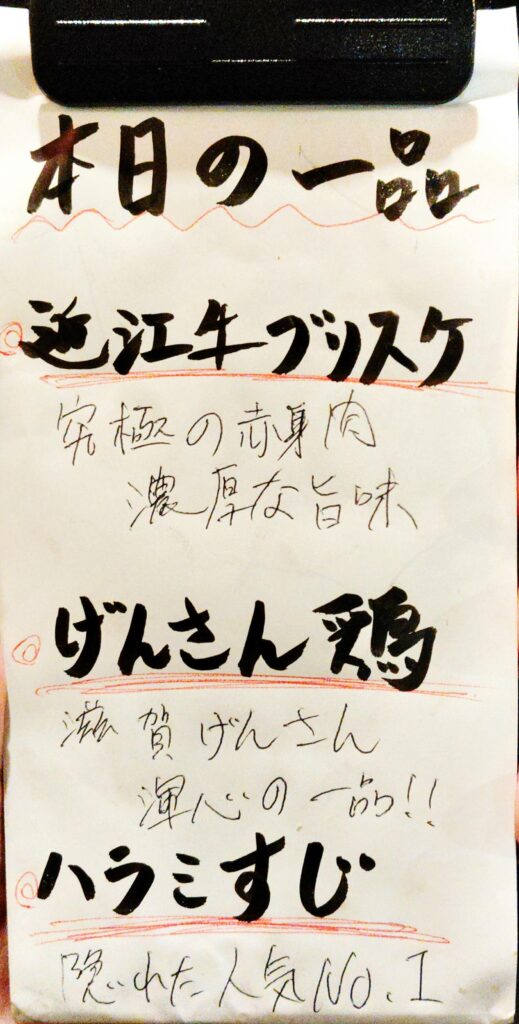 本日の一品
近江牛ブリスケ
究極の赤身肉
濃厚な旨味
げんさん鶏
滋賀げんさん
渾心の一品!!
ハラミすじ
隠れた人気No.1